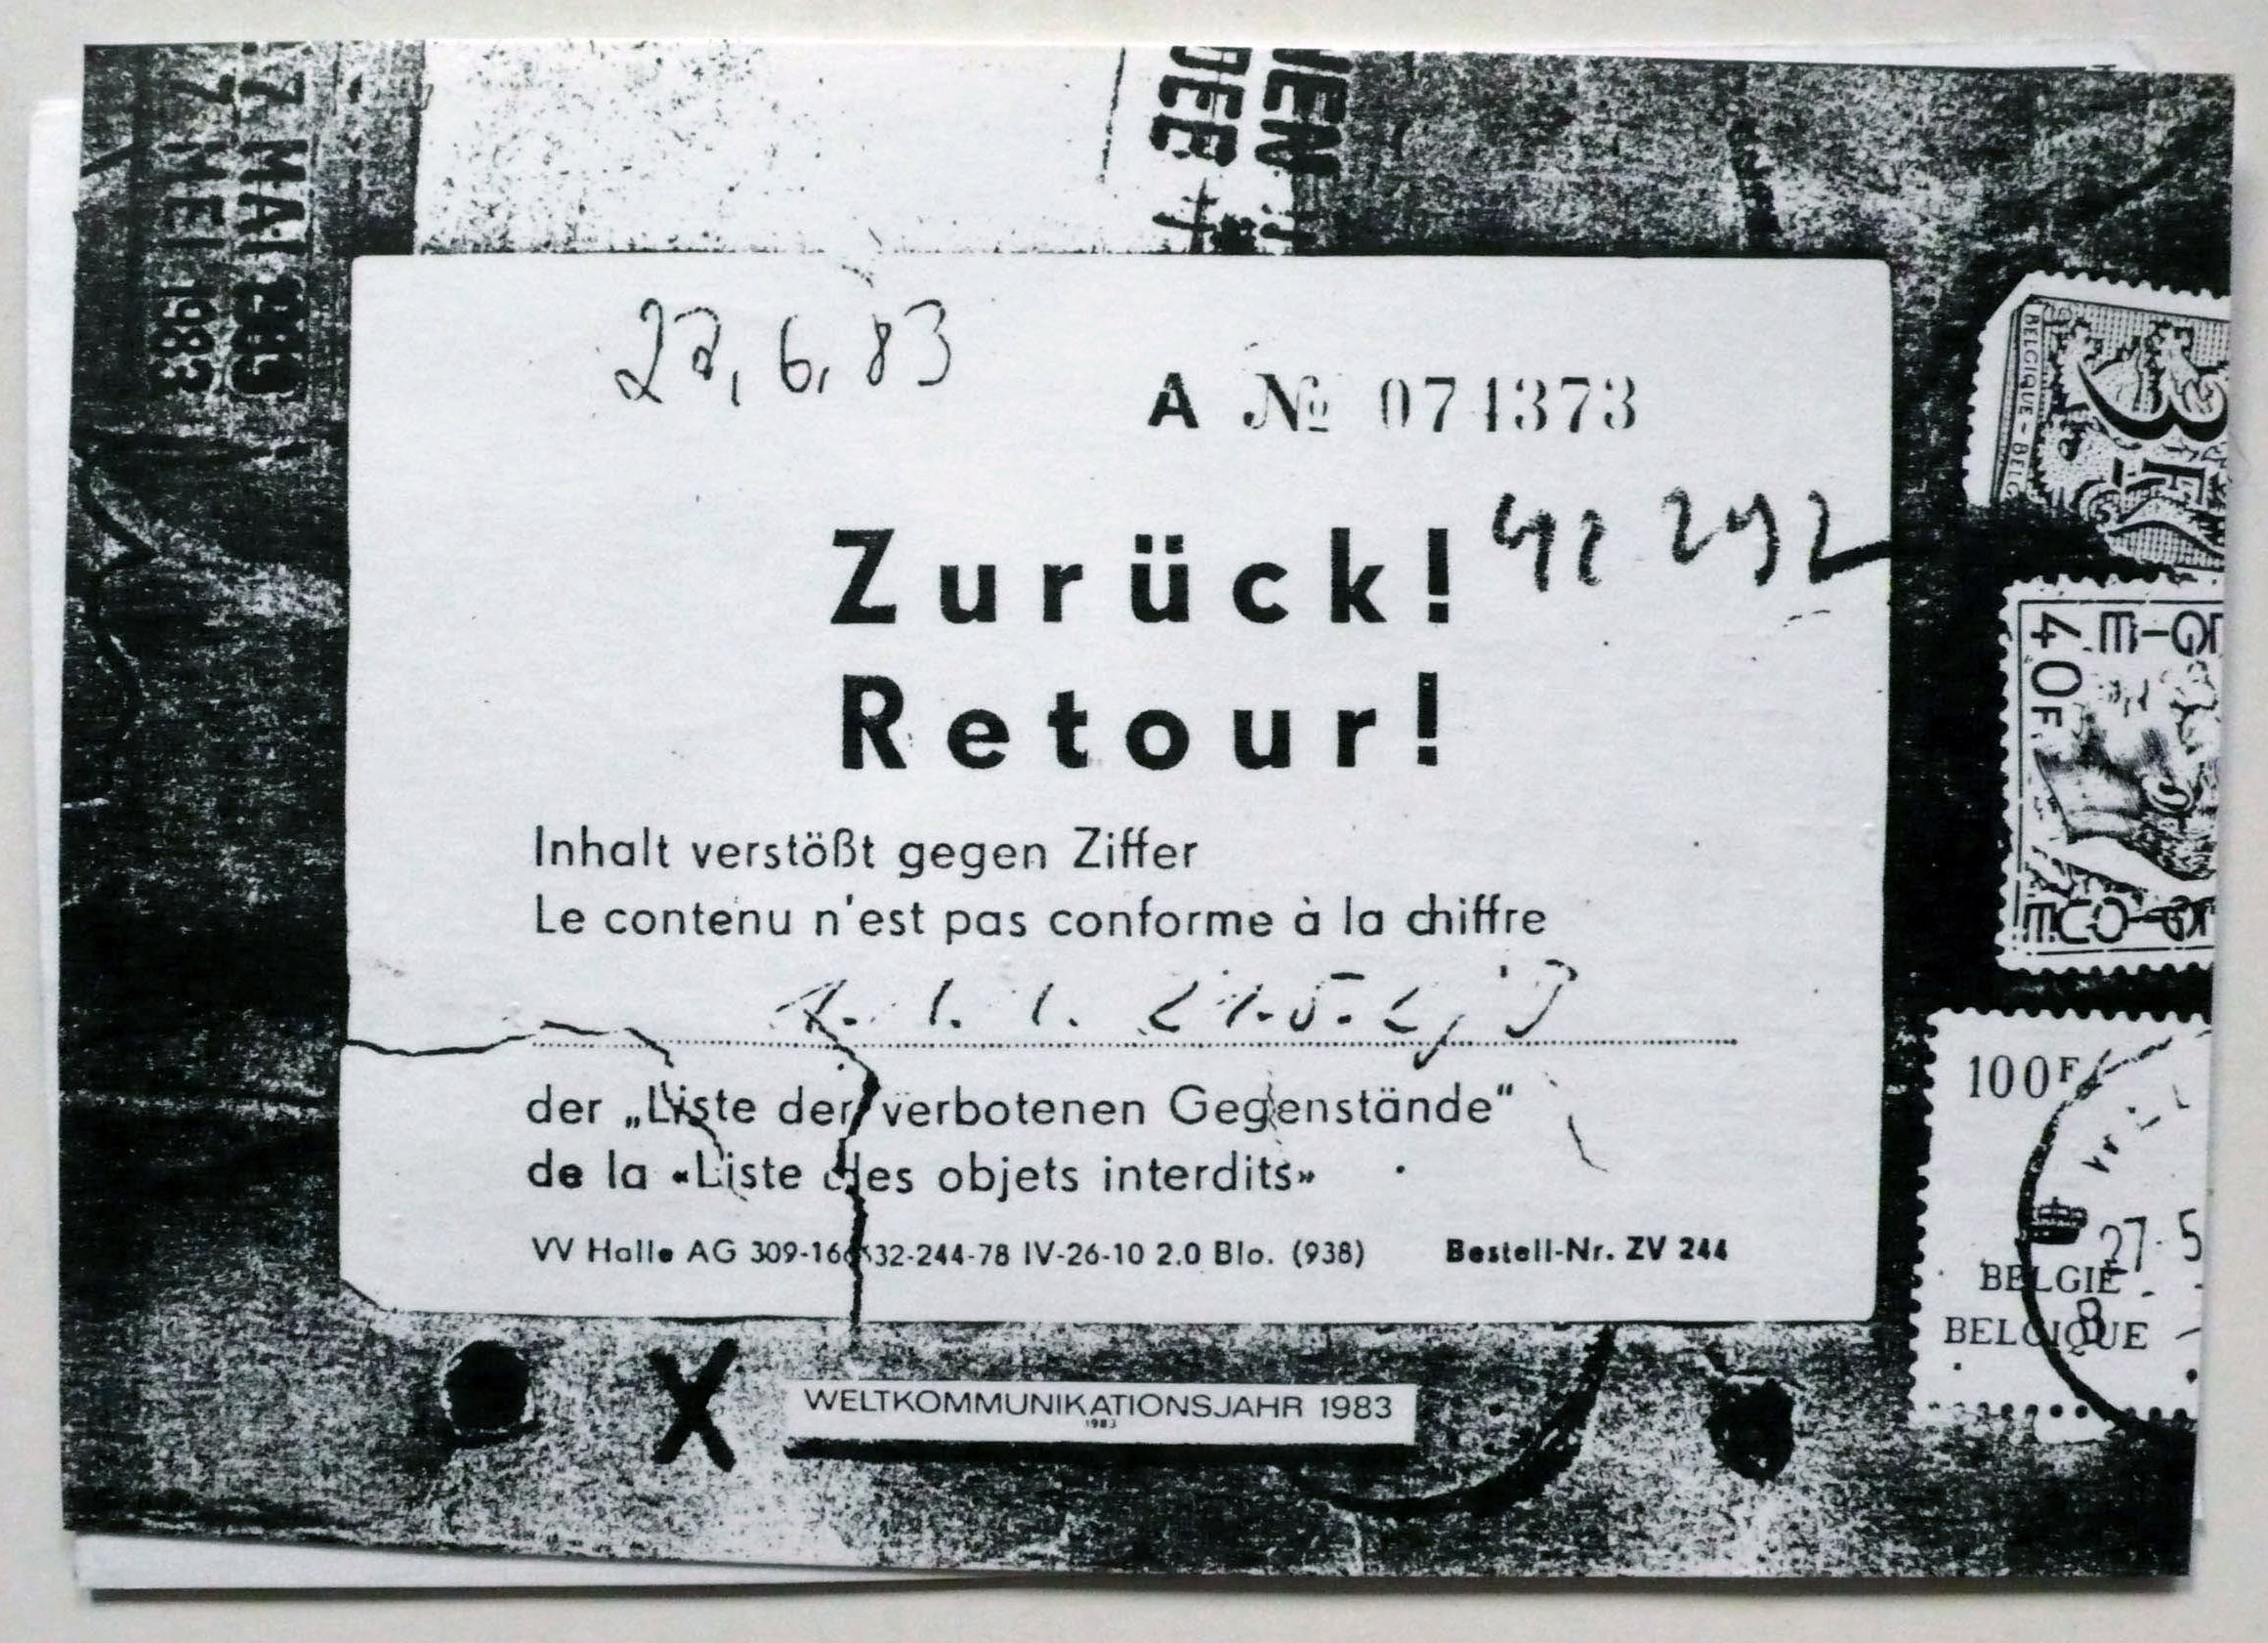 7 MAI 1983
7 MEI 1983
A № 074373
Zurück!
Retour!
Inhalt verstößt gegen Ziffer
Le contenu n'est pas conforme à la chiffre
der „Liste der verbotenen Gegenstände“
de la «Liste des objets interdits»
VV Halle AG 309-16 32-244-78 IV-26-10 2.0 Blo. (938) Bestell-Nr. ZV 244
X
WELTKOMMUNIKATIONSJAHR 1983
1983
BELGIQUE - BELG
40F
100F
27-5
BELGIE
BELGIQUE